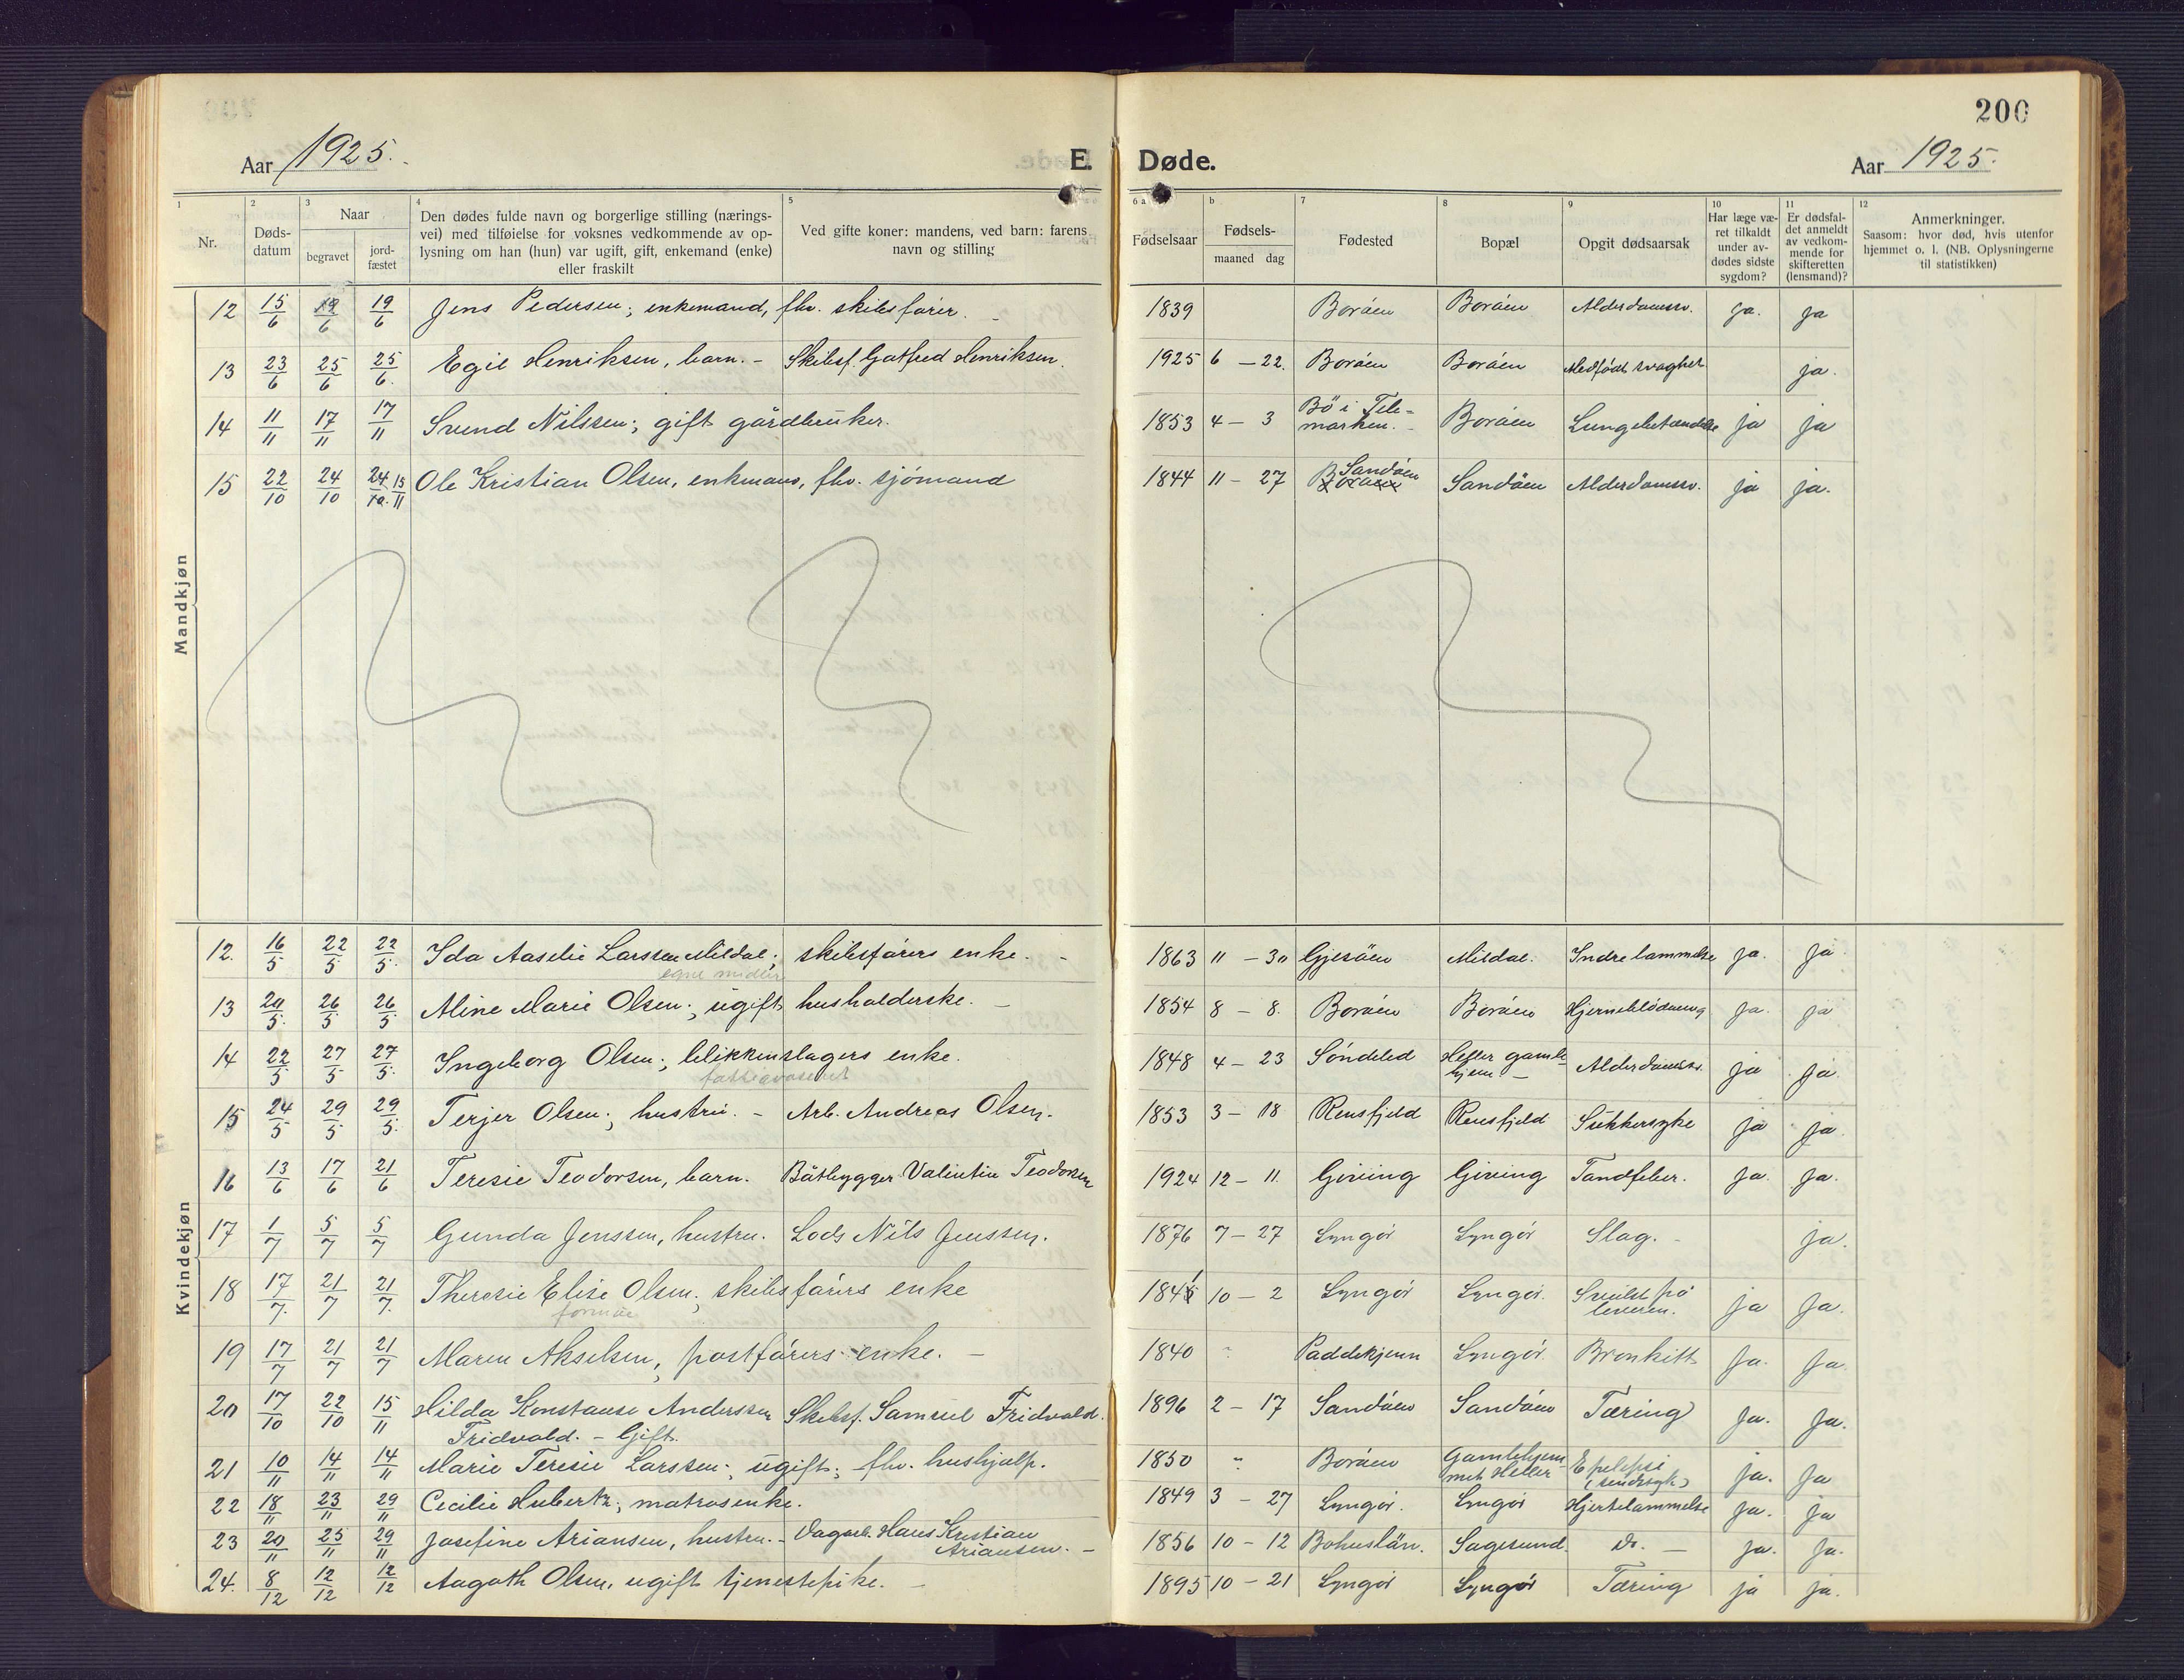 200
Aar 1925.
E. Døde.
Aar 1925.
1 Nr.
2 Døds-datum
3 Naar begravet jord-fæstet
4 Den dødes fulde navn og borgerlige stilling (nærings-
vei) med tilføielse for voksnes vedkommende av op-
lysning om han (hun) var ugift, gift, enkemand (enke)
eller fraskilt
5 Ved gifte koner: mandens, ved barn: farens
navn og stilling
6 a Fødselsaar
b Fødsels-
maaned dag
7 Fødested
8 Bopæl
9 Opgit dødsaarsak
10 Har læge væ-
ret tilkaldt
under av-
dødes sidste
sygdom?
11 Er dødsfal-
det anmeldt
av vedkom-
mende for
skifteretten
(lensmand)?
12 Anmerkninger.
Saasom: hvor død, hvis utenfor
hjemmet o. l. (NB. Oplysningerne
til statistikken)
Mandkjøn
12 15/6 19/6 19/6 Jens Pedersen; enkemand, fhv. skibsfører. 1839 Borøen Borøen Alderdomssv. ja. ja
13 23/6 25/6 25/6. Egil Henriksen, barn. – Skibsf. Gotfred Henriksen. 1925 6 – 22. Borøen Borøen Medfødt svaghet ja.
14 11/11 17/11 17/11 Svend Nilssen; gift gårdbruker. 1853 4 – 3 Bö i Tele-
marken. – Borøen Lungebetændelse ja ja
15 22/10 24/10 24/10. 15/11 Ole Kristian Olsen, enkemand, fhv. sjømand 1844 11 – 27 Borøen Sandøen Sandøen Alderdomssv. ja ja.
Kvindekjøn
12. 16/5 22/5 22/5. Ida Aaselie Larssen Mildal; skibsførers enke. – 1863 11 – 30 Gjesøen Mildal. Indre lammelse ja. ja
egne midler
13 20/5. 26/5 26/5 Aline Marie Olsen; ugift husholderske. – 1854 8 – 8. Borøen Borøen Hjerneblödning ja. ja
14 22/5 27/5 27/5. Ingeborg Olsen; blikkenslagers enke. 1848 4 – 23 Söndeled Heller gamle-
hjem – Alderdomssv. ja ja.
fattigvæsenet
15 24/5 29/5 29/5. Terjer Olsen; hustru. – Arb. Andreas Olsen. 1853 3 – 18 Rensfjeld Rensfjeld Sukkersyke ja ja.
16 13/6 17/6 21/6 Teresie Teodorsen, barn. Båtbygger Valintin Teodorsen 1924 12 – 11. Gjeving Gjeving Tandfeber. ja. ja.
17 1/7 5/7 5/7 Gunda Jenssen, hustru. Lods Nils Jenssen. 1876 7 – 27 Lyngør Lyngør Slag. – ja.
18 17/7. 21/7 21/7. Theresie Elise Olsen; skibsførers enke 1841 10 – 2 Lyngør Lyngør. Svulst på
leveren. ja ja.
formue
19 17/7 21/7 21/7 Maren Akselsen, postførers enke. – 1840 " Paddekjenn Lyngør. Bronkitt ja. ja.
20 17/10 22/10 15/11 Hilda Konstanse Anderssen
Fridvald. – Gift. Skibsf. Samuel Fridvald. 1896 2 – 17 Sandøen Sandøen Tæring ja. ja.
21 10/11 14/11 14/11 Marie Teresie Larssen; ugift; fhv. hushjælp. 1850 " Borøen Gamlehjem-
met Heller Epilepsi
(sindssyk) ja. ja
22 18/11 23/11 29/11 Cecilie Hubertz; matrosenke. 1849 3 – 27 Lyngør. Lyngør Hjertelammelse ja. ja
23 20/11 25/11 29/11 Josefine Ariansen, hustru. – Dagarb. Hans Kristian
Ariansen. – 1856 10 – 12 Bohuslän. Sagesund. Do. – ja. ja.
24. 8/12 12/12 12/12 Aagoth Olsen, ugift tjenestepike. – 1895 10 – 21 Lyngør Lyngør Tæring ja ja.